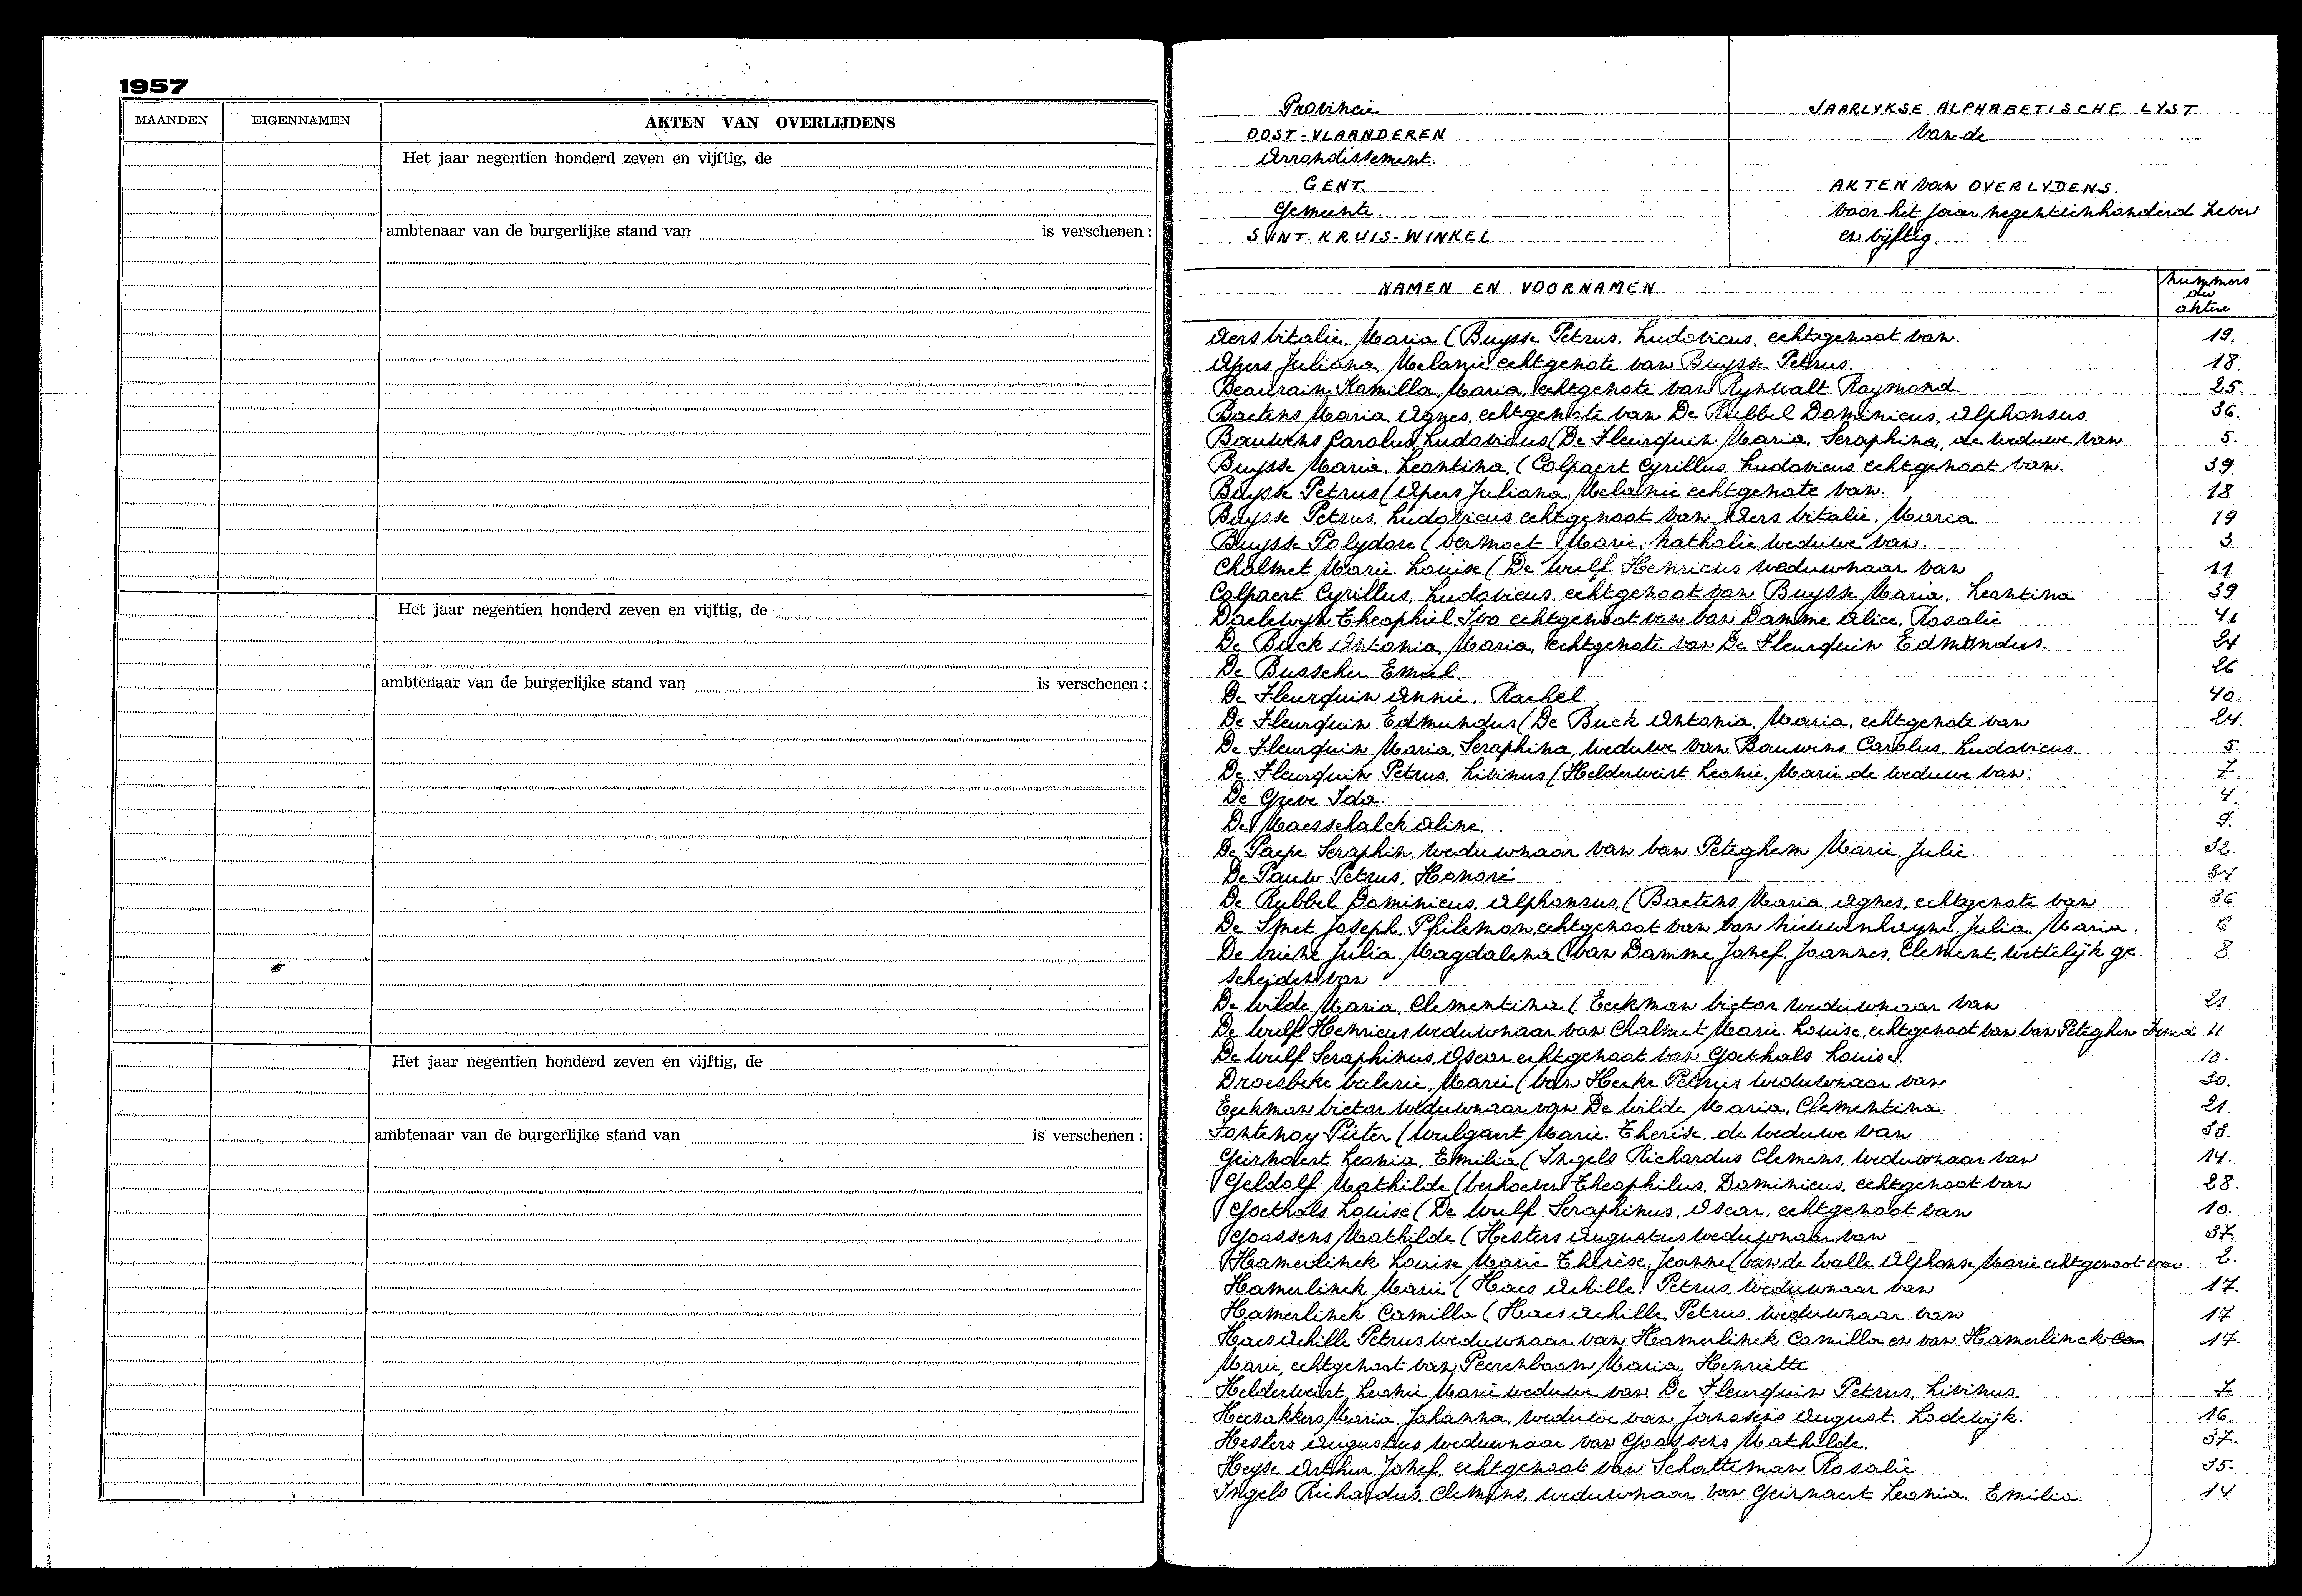 1957
MAANDEN EIGENNAMEN AKTEN VAN OVERLIJDENS
Het jaar negentien honderd zeven en vijftig, de
ambtenaar van de burgerlijke stand van is verschenen :
Het jaar negentien honderd zeven en vijftig, de
ambtenaar van de burgerlijke stand van is verschenen :
Het jaar negentien honderd zeven en vijftig, de
ambtenaar van de burgerlijke stand van is verschenen :
Provincie
OOST-VLAANDEREN
Arrondissement.
GENT.
Gemeente.
SINT-KRUIS-WINKEL
JAARLYKSE ALPHABETISCHE LYST
van de
AKTEN van OVERLYDENS.
voor het jaar negentienhonderd zeven
en vijftig.
NAMEN EN VOORNAMEN. nummers
der
akten
Aers Vitalie, Maria (Buysse Petrus, Ludovicus, echtgenoot van. 19.
Apers Juliana, Melanie echtgenote van Buysse Petrus. 18.
Beaurain Kamilla, Maria, echtgenote van Rynwalt Raymond. 25.
Baetens Maria, Agnes, echtgenote van De Rubbel Dominicus, Alphonsus. 36.
Bauwens Carolus, Ludovicus (De Fleurquin Maria, Seraphina, de weduwe van 5.
Buysse Maria, Leontina, (Colpaert Cyrillus, Ludovicus echtgenoot van. 39.
Buysse Petrus (Apers Juliana, Melanie echtgenote van. 18
Buysse Petrus, Ludovicus echtgenoot van Aers Vitalie, Maria. 19
Buysse Polydore (Vermoet Marie, Nathalie, weduwe van. 3.
Chalmet Marie Louise (De Wulf Henricus weduwnaar van 11
Colpaert Cyrillus, Ludovicus, echtgenoot van Buysse Maria, Leontina 39
Daelewyn Theophiel Ivo echtgenoot van Van Damme Alice, Rosalie 41
De Buck Antonia, Maria, echtgenote van De Fleurquin Edmondus. 24
De Busscher Emiel. 26
De Fleurquin Annie, Rachel. 40.
De Fleurquin Edmundus (De Buck Antonia, Maria, echtgenote van 24.
De Fleurquin Maria, Seraphina, weduwe van Bauwens Carolus, Ludovicus. 5.
De Fleurquin Petrus, Livinus (Helderweirt Leonie, Marie de weduwe van. 7.
De Greve Ida. 4.
De Maesschalck Aline. 9.
De Paepe Seraphin weduwnaar van Van Peteghem Marie, Julie. 32.
De Pauw Petrus, Honoré 34
De Rubbel Dominicus, Alphonsus, (Baetens Maria, Agnes, echtgenote van 36
De Smet Joseph, Philemon, echtgenoot van Van Nieuwenhuyse, Julia, Maria. 6
De Vriese Julia, Magdalena (Van Damme Jozef, Joannes, Clement, wettelijk ge- 8
scheiden van
De Wilde Maria, Clementina (Eeckman Victor weduwnaar van 21
De Wulf Henricus weduwnaar van Chalmet Marie, Louise, echtgenoot van Van Peteghem Irma 11
De Wulf Seraphinus, Oscar echtgenoot van Goethals Louise. 10.
Droesbeke Valerie, Marie (Van Hecke Petrus weduwnaar van 30.
Eeckman Victor weduwnaar van De Wilde Maria, Clementina. 21
Fontenoy Pieter (Wulgaert Marie, Therèse, de weduwe van 33.
Geirnaert Leonia, Emilia (Ingels Richardus Clemens, weduwnaar van 14.
Geldolf Mathilde (Verhoeven Theophilus, Dominicus, echtgenoot van 28.
Goethals Louise (De Wulf Seraphinus, Oscar, echtgenoot van 10.
Goossens Mathilde (Hesters Augustus weduwnaar van 37.
Hamerlinck Louise Marie Thérèse, Jeanne (Van de Walle Alphonse Marie echtgenoot van 2.
Hamerlinck Marie (Haes Achille, Petrus, weduwnaar van 17.
Hamerlinck Camilla (Haes Achille Petrus, weduwnaar van 17
Haes Achille Petrus weduwnaar van Hamerlinck Camilla en van Hamerlinck 17.
Marie, echtgenoot van Peerenboom Maria, Henriette
Helderweirt, Leonie Marie weduwe van De Fleurquin Petrus, Livinus. 7.
Heesakkers Maria, Johanna, weduwe van Janssens August, Lodewijk. 16.
Hesters Augustus weduwnaar van Goossens Mathilde. 37.
Heyse Arthur, Jozef, echtgenoot van Schatteman Rosalie 35.
Ingels Richardus, Clemens, weduwnaar van Geirnaert Leonia, Emilia. 14